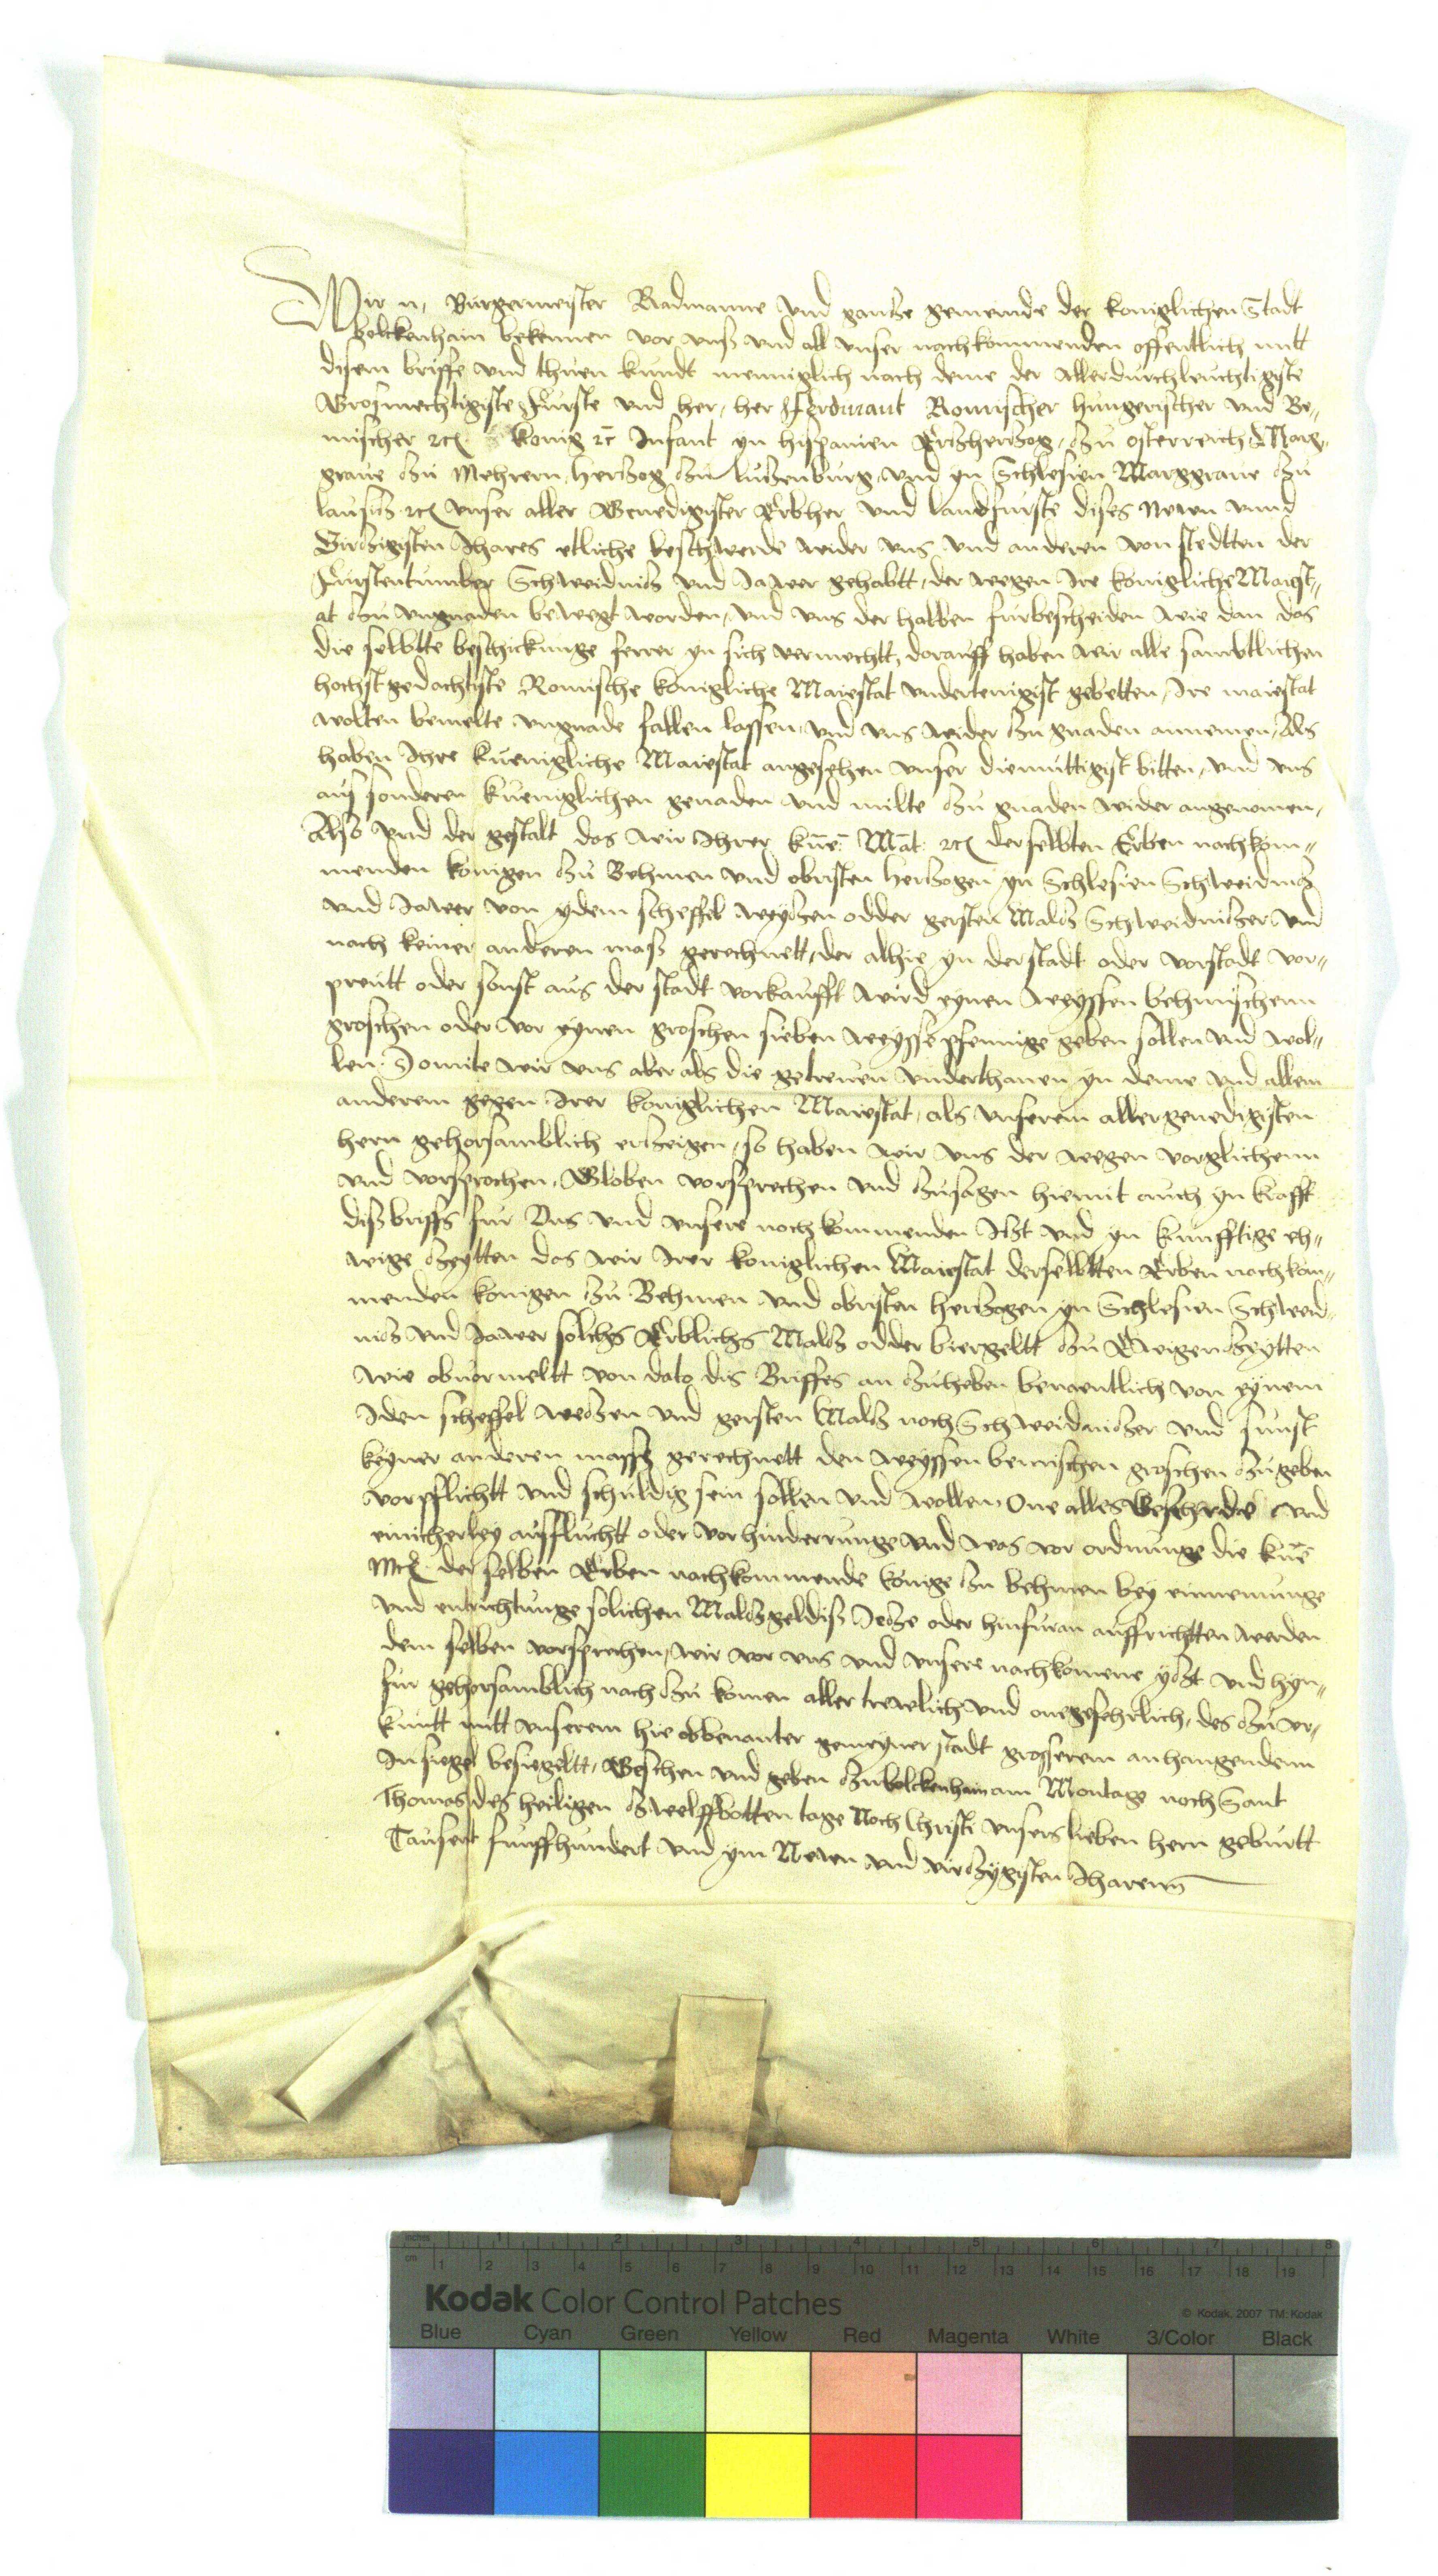 Wir n, Burgermeister Radmanne vnd gantze gemeinde der koniglichen Stadt
bolckenhain bekennen vor vnß vnd all vnser nachkommenden offentlich mitt
disem briffe vnd thuen kundt menniglich nach deme der Allerdurchleuchtigiste
Grosmechtigiste Furste vnd her, her Ferdinant Romischer hungerischer vnd Be„
mischer ꝛcꝫ konig ꝛc̄ Infant yn hispanien Ertzhertzog, dzu osterreich Marg„
graue dzu Mehrern, hertzog dzu lutzenburg, vnd yn Schlesien Marggraue dzu
lausitz ꝛcꝫ vnser aller Genedigister Erbher vnd landfurste dises Newn vnnd
Virdzigisten Jhares etliche beschwerde wider vns vnd anderen von stedtten der
Furstentumber Schweidnidz vnd Jawer gehabtt, der wegen Ire konigliche Maiest„
at dzu vngnaden bewegt worden, vnd vns der halben furbescheiden wie dan das
die selbtte beschickunge ferrer yn sich vermechtt, dorauff haben wir alle sambtlichen
hochstgedachtiste Romische konigliche Maiestat vndertenigist gebetten, Ire maiestat
wolten bemelte vngnade fallen lassen, vnd vns wider dzu gnaden annemen, Als
haben Ihre kuenigliche Maiestat angesehen vnser diemuttigist bitten, vnd vns
aus sonderen kueniglichen genaden vnd milte dzu gnaden wider angenomen,
Also vnd der gestalt das wir Ihrer kue: Mat: ꝛcꝫ derselbten Erben nachkom„
menden konigen dzu Behmen vnd obristen hertzogen yn Schlesien Schweidnidz
vnd Jawer von ydem scheffel weydzen odder gersten Maldz Schweidnidzer vnd
nach keiner anderen maß gerechnett, der alhie yn der stadt oder vorstadt vor„
preutt oder sonst aus der stadt vorkaufft wird eynen weyssen behmischenn
groschen oder vor eynen groschen sieben weysse pfennige geben sollen vnd wol„
len, Domite wir vns aber als die getreuen vnderthanen yn deme vnd allem
anderem gegen Irer koniglichen Maiestat, als vnserem allergenedigisten
hern gehorsamblich ertzeigen, so haben wir vns der wegen vorglichenn
vnd vorsprochen, Globen vorsprechen vnd dzusagen hiemit auch yn krafft
diß briffs fur Vns vnd vnsere nochkommenden Itzt vnd yn kunfftige eh„
wige dzeytten das wir Irer koniglichen Maiestat derselbtten Erben nochkom„
menden konigen dzu Behmen vnd obristen hertzogen yn Schlesien Schweid„
nidz vnd Jawer solchs Erblichs Maldz odder biergeltt dzu Ewigen dzeytten
wie obuormeltt von dato dis Briffes an dzuheben benaentlich von eynem
Iden scheffel wedzen vnd gersten Maldz noch Schweidnidzer vnd sunst
keyner anderen masse gerechnett den weyssen bemischen groschen dzu geben
vorpflichtt vnd schuldig sein sollen vnd wollen One alles Geferde vnd
einicherley ausfluchtt oder vorhinderrunge vnd was vor ordnunge die kue
Mꝛꝫ derselben Erben nachkommende konige dzu behmen bey einnemunge
vnd entrichtunge solichen Maldzgeldiß Iedze oder hinfuran auffrichtten werden
dem selben vorsprechen, wir vor vns vnd vnsere nachkomene ydzt vnd hyn„
fur gehorsamblich nach dzu komen aller trewlich vnd onegefehrlich, des dzu vr„
kuntt mitt vnserem hie obbenanter gemeyner stadt grosserem anhangendenn
Insiegel besiegeltt, Geschen vnd geben dzu bolckenhain am Montage noch Sant
Thomas des heiligen dzwelffbotten tage Noch Christi vnsers lieben hern geburtt
Tausent funffhundert vnd ym Newn vnd virdzygisten Jharenn
inches 1 2 3 4 5 6 7 8
cm 1 2 3 4 5 6 7 8 9 10 11 12 13 14 15 16 17 18 19
Kodak Color Control Patches
© Kodak, 2007 TM: Kodak
Blue Cyan Green Yellow Red Magenta White 3/Color Black